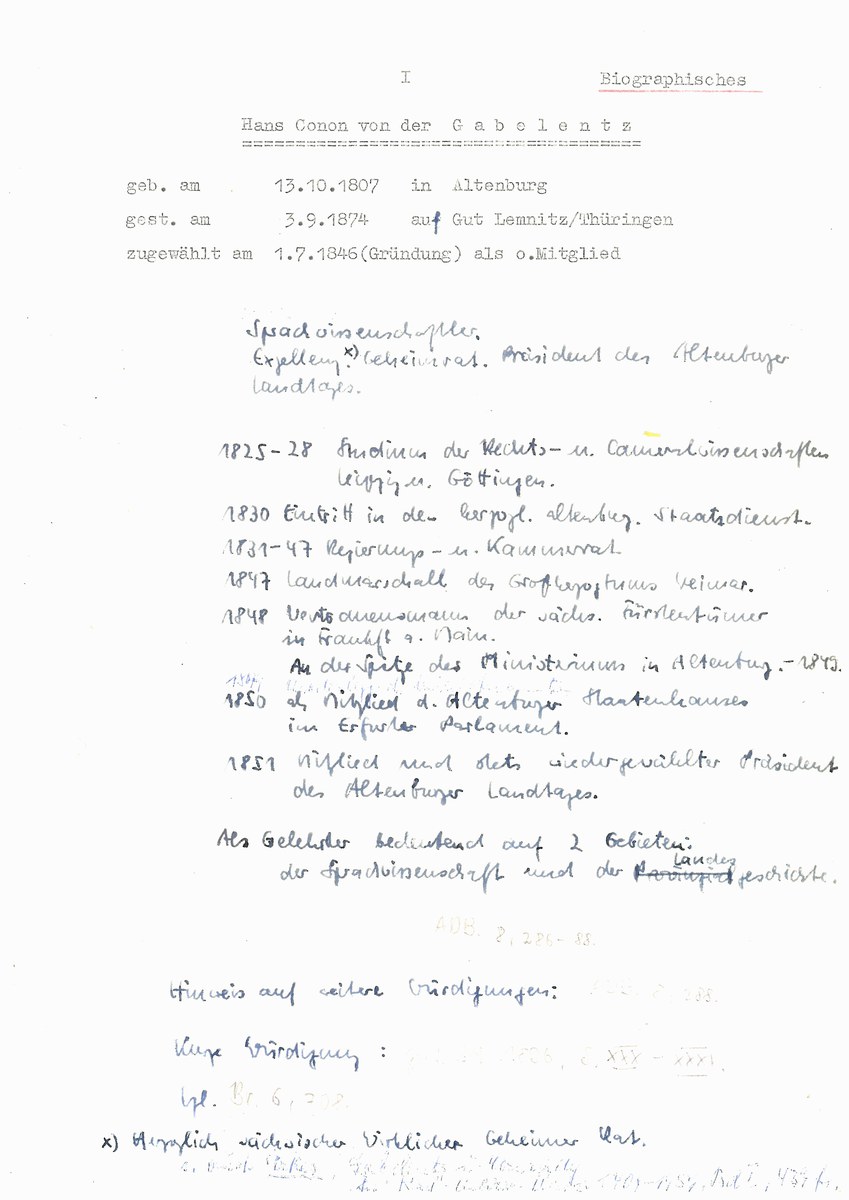 I Biographisches
Hans Conon von der G a b e l e n t z
=====================================
geb. am 13.10.1807 in Altenburg
gest. am 3.9.1874 auf Gut Lemnitz/Thüringen
zugewählt am 1.7.1846(Gründung) als o.Mitglied
Sprachwissenschaftler.
Exzellenz.x) Geheimrat. Präsident des Altenburger
Landtages.
1825-28 Studium der Rechts- u. Cameralwissenschaften
Leipzig u. Göttingen.
1830 Eintritt in den herzogl. altenburg. Staatsdienst.
1831-47 Regierungs- u. Kammerrat
1847 Landmarschall des Großherzogtums Weimar.
1848 Vertrauensmann der sächs. Fürstentümer
in Frankft a. Main.
An der Spitze des Ministeriums in Altenburg.-1849.
1850 als Mitglied d. Altenburger Staatenhauses
im Erfurter Parlament.
1851 Mitglied und stets wiedergewählter Präsident
des Altenburger Landtages.
Als Gelehrter bedeutend auf 2 Gebieten:
Landes
der Sprachwissenschaft und der Provinzialgeschichte.
ADB. 8, 286-88.
Hinweis auf weitere Würdigungen: 288.
Kurze Würdigung : 1886, S. XXX - XXXI.
Vgl. Br. 6, 708.
x) Herzoglich sächsischer Wirklicher Geheimer Rat.